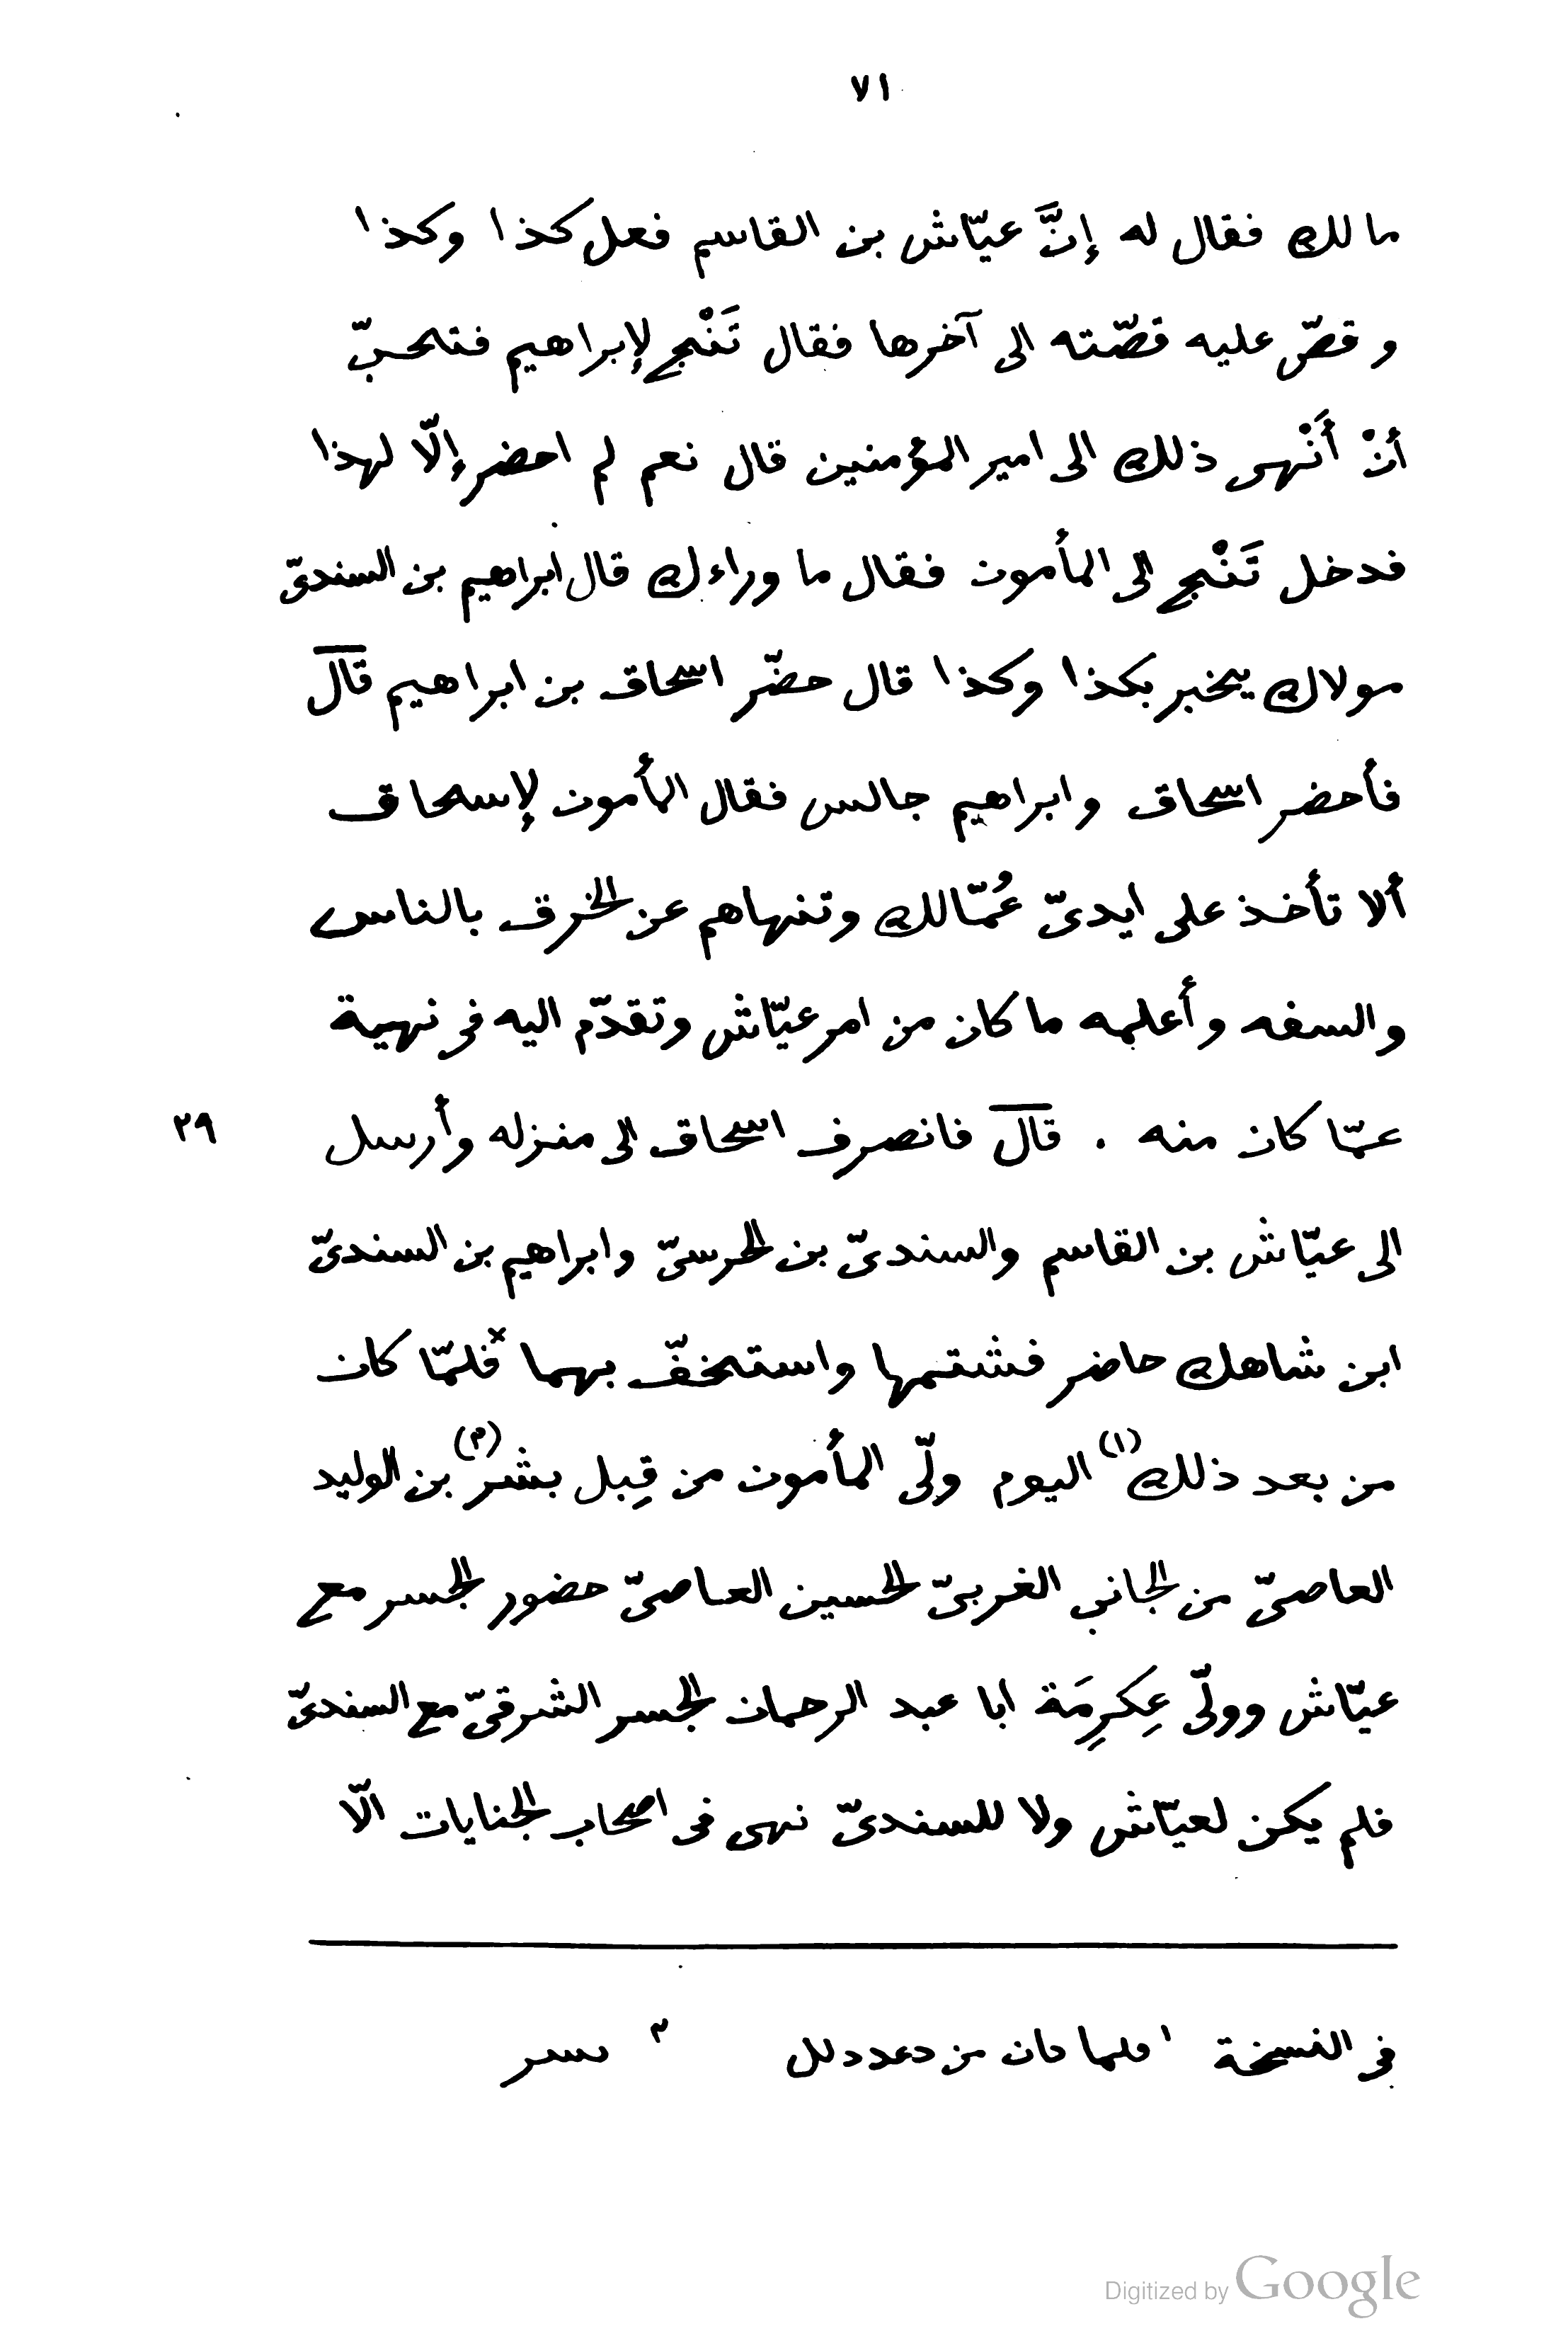 ٧١
ما لك فقال له إنَّ عيّاش بن القاسم فعل كذا وكذا
وقصّ عليه قصّته الى آخرها فقال تَنْج لإبراهيم فتحبّ
أنْ أَنْهى ذلك الى امير المؤمنين قال نعم لم احضر إلّا لهذا
فدخل تَنْج الى المأمون فقال ما وراءك قال ابراهيم بن السندىّ
مولاك يخبر بكذا وكذا قال حضّر اسحاق بن ابراهيم قال
فأحضر اسحاق وابراهيم جالس فقال المأمون لإسحاق
ألا تأخذ على ايدىّ عُمّالك وتنهاهم عن الخرق بالناس
والسفه وأعلمه ما كان من امر عيّاش وتقدّم اليه فى نهية
عمّا كان منه . قال فانصرف اسحاق الى منزله وأرسل ٣٩
الى عيّاش بن القاسم والسندىّ بن الحرسىّ وابراهيم بن السندىّ
ابن شاهك حاضر فشتمها واستخفّ بهما × فلمّا كان
من بعد ذلك (١) اليوم ولّى المأمون من قِبل بشر (٢) بن الوليد
العاصىّ من الجانب الغربىّ الحسين العاصىّ حضور الجسر مع
عيّاش وولّى عِكرِمَة ابا عبد الرحمان الجسر الشرقىّ مع السندىّ
فلم يكن لعيّاش ولا للسندىّ نهى فى اصحاب الجنايات الّا
فى النسخة ١ فلما كان من دعد دلك ٢ ىسر
Digitized by Google